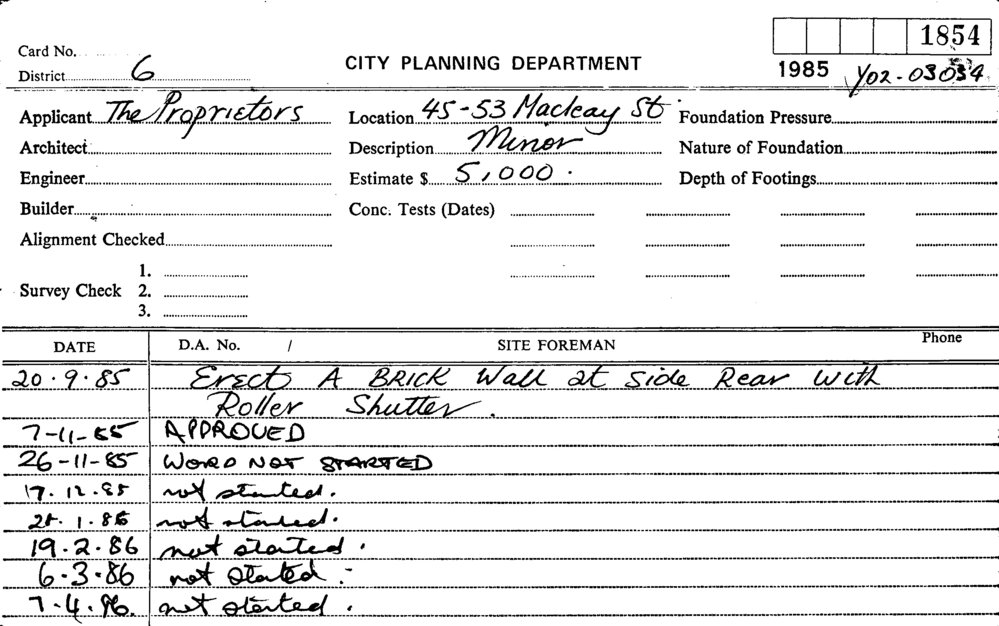 1854
Card No.
District 6
CITY PLANNING DEPARTMENT
1985 Y02-03034
Applicant The Proprietors
Location 45-53 Macleay St.
Foundation Pressure
Architect
Description Minor
Nature of Foundation
Engineer
Estimate $ 5,000.
Depth of Footings
Builder
Conc. Tests (Dates)
Alignment Checked
1.
Survey Check 2.
3.
DATE D.A. No. / SITE FOREMAN Phone
20.9.85 Erect A BRICK Wall at side Rear with
Roller Shutter.
7-11-85 APPROVED
26-11-85 NOT STARTED
17.12.85 not started.
1.86 not started.
19.2.86 not started.
6.3.86 not started.
7.4.86. not started.